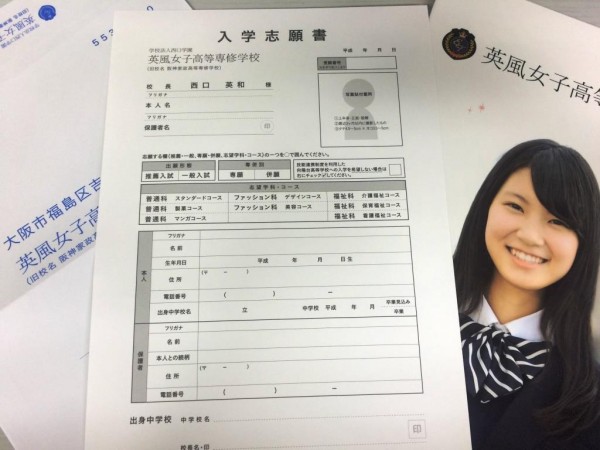 入学志願書
平成　年　月　日
学校法人西口学園
英風女子高等専修学校
(旧校名 阪神家政高等専修学校)
受験番号
校長　西口　英和　様
フリガナ
本人名
フリガナ
保護者名　印
写真貼付箇所
志願する欄(推薦・一般、専願・併願、志望学科・コース)の一つを○で囲んでください。
出願形態　専併別
推薦入試　一般入試　専願　併願
技能連携制度を利用した
向陽台高等学校への入学を希望しない場合は
右にチェックしてください。
志望学科・コース
普通科　スタンダードコース　ファッション科　デザインコース　福祉科　介護福祉コース
普通科　製菓コース　ファッション科　美容コース　福祉科　保育福祉コース
普通科　マンガコース　福祉科　看護福祉コース
本人
フリガナ
名前
生年月日　平成　年　月　日生
住所　(〒　－　)
電話番号　(　)　－
出身中学校名　立　中学校　平成　年　月　卒業見込み
卒業
保護者
フリガナ
名前
本人との続柄
住所　(〒　－　)
電話番号　(　)　－
出身中学校　中学校名
印
校長名・印
学校法人西口学園
英風女子高
(旧校名 阪神家政
553
大阪市福島区吉
英風女子高
(旧校名 阪神家政
英風女子高等